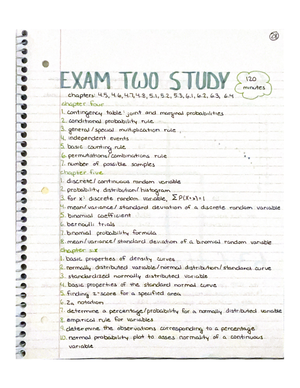 28
EXAM TWO STUDY
120 minutes
chapters: 4.5, 4.6, 4.7, 4.8, 5.1, 5.2, 5.3, 6.1, 6.2, 6.3, 6.4
chapter four
1. contingency table: joint and marginal probabilities
2. conditional probability rule
3. general/special multiplication rule
4. independent events
5. basic counting rule
6. permutations/combinations rule
7. number of possible samples
chapter five
1. discrete/continuous random variable
2. probability distribution/histogram
3. for x: discrete random variable, ΣP(X=x)=1
4. mean/variance/standard deviation of a discrete random variable
5. binomial coefficient
6. bernoulli trials
7. binomial probability formula
8. mean/variance/standard deviation of a binomial random variable
chapter six
1. basic properties of density curves
2. normally distributed variable/normal distribution/standard curve
3. standardized normally distributed variable
4. basic properties of the standard normal curve
5. finding z-score for a specified area
6. zα notation
7. determine a percentage/probability for a normally distributed variable
8. empirical rule for variables
9. determine the observations corresponding to a percentage
10. normal probability plot to assess normality of a continuous
variable